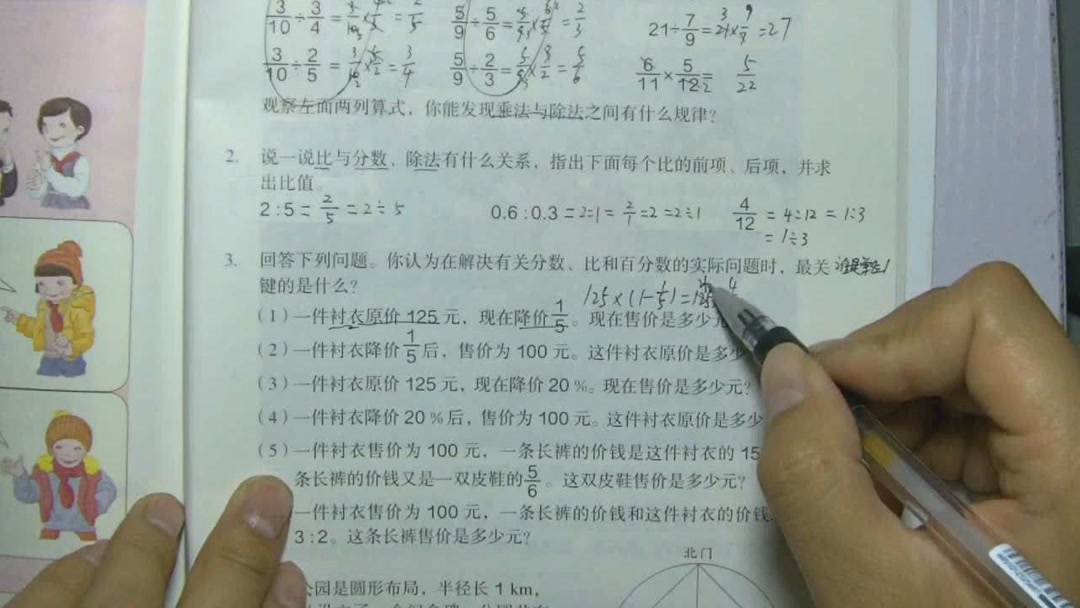 3/10 ÷ 3/4 = = 2/5
5/9 ÷ 5/6 = = 2/3
21÷ 7/9 = = 27
3/10 ÷ 2/5 = = 3/4
5/9 ÷ 2/3 = = 5/6
6/11 × 5/12 = 5/22
观察左面两列算式，你能发现乘法与除法之间有什么规律？
2. 说一说比与分数、除法有什么关系，指出下面每个比的前项、后项，并求
出比值。
2:5 = 2/5 = 2÷5
0.6:0.3 = 2:1 = 2/1 = 2 = 2÷1
4/12 = 4:12 = 1:3
= 1÷3
3. 回答下列问题。你认为在解决有关分数、比和百分数的实际问题时，最关
键的是什么？
125×(1-1/5)=125
(1) 一件衬衣原价 125 元，现在降价 1/5。现在售价是多少元
(2) 一件衬衣降价 1/5 后，售价为 100 元。这件衬衣原价是多少
(3) 一件衬衣原价 125 元，现在降价 20 %。现在售价是多少元？
(4) 一件衬衣降价 20 % 后，售价为 100 元。这件衬衣原价是多少
(5) 一件衬衣售价为 100 元，一条长裤的价钱是这件衬衣的 15
条长裤的价钱又是一双皮鞋的 5/6。这双皮鞋售价是多少元？
一件衬衣售价为 100 元，一条长裤的价钱和这件衬衣的价钱
3:2。这条长裤售价是多少元？
北门
公园是圆形布局，半径长 1 km，